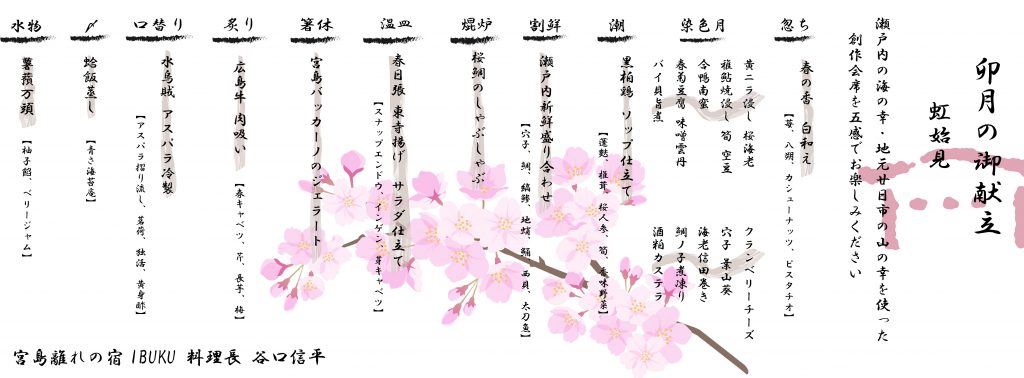 卯月の御献立
虹始見
瀬戸内の海の幸・地元廿日市の山の幸を使った
創作会席を五感でお楽しみください
忽ち
春の香 白和え
【苺、八朔、カシューナッツ、ピスタチオ】
染色月
黄ニラ優し 桜海老
稚鮎焼優し 筍 空豆
合鴨南蜜
春菊豆腐 味噌雲丹
バイ貝旨煮
クランベリーチーズ
穴子 葉山葵
海老信田巻き
鯛ノ子煮凍り
酒粕カステラ
潮
黒柏鶏 ソップ仕立て
【蓮麩、椎茸、桜人参、筍、香味野菜】
割鮮
瀬戸内新鮮盛り合わせ
【穴子、鯛、縞鯵、地蛸、鮪、西貝、太刀魚】
焜炉
桜鯛のしゃぶしゃぶ
温皿
春日張 東寺揚げ サラダ仕立て
【スナップエンドウ、インゲン、芽キャベツ】
箸休
宮島バッカーノのジェラート
炙り
広島牛 肉吸い
【春キャベツ、芹、長芋、梅】
口替り
水烏賊 アスパラ冷製
【アスパラ摺り流し、茗荷、独活、黄身酢】
〆
蛤飯蒸し
【青さ海苔庵】
水物
薯蕷万頭
【柚子餡、ベリージャム】
宮島離れの宿 IBUKU 料理長 谷口信平